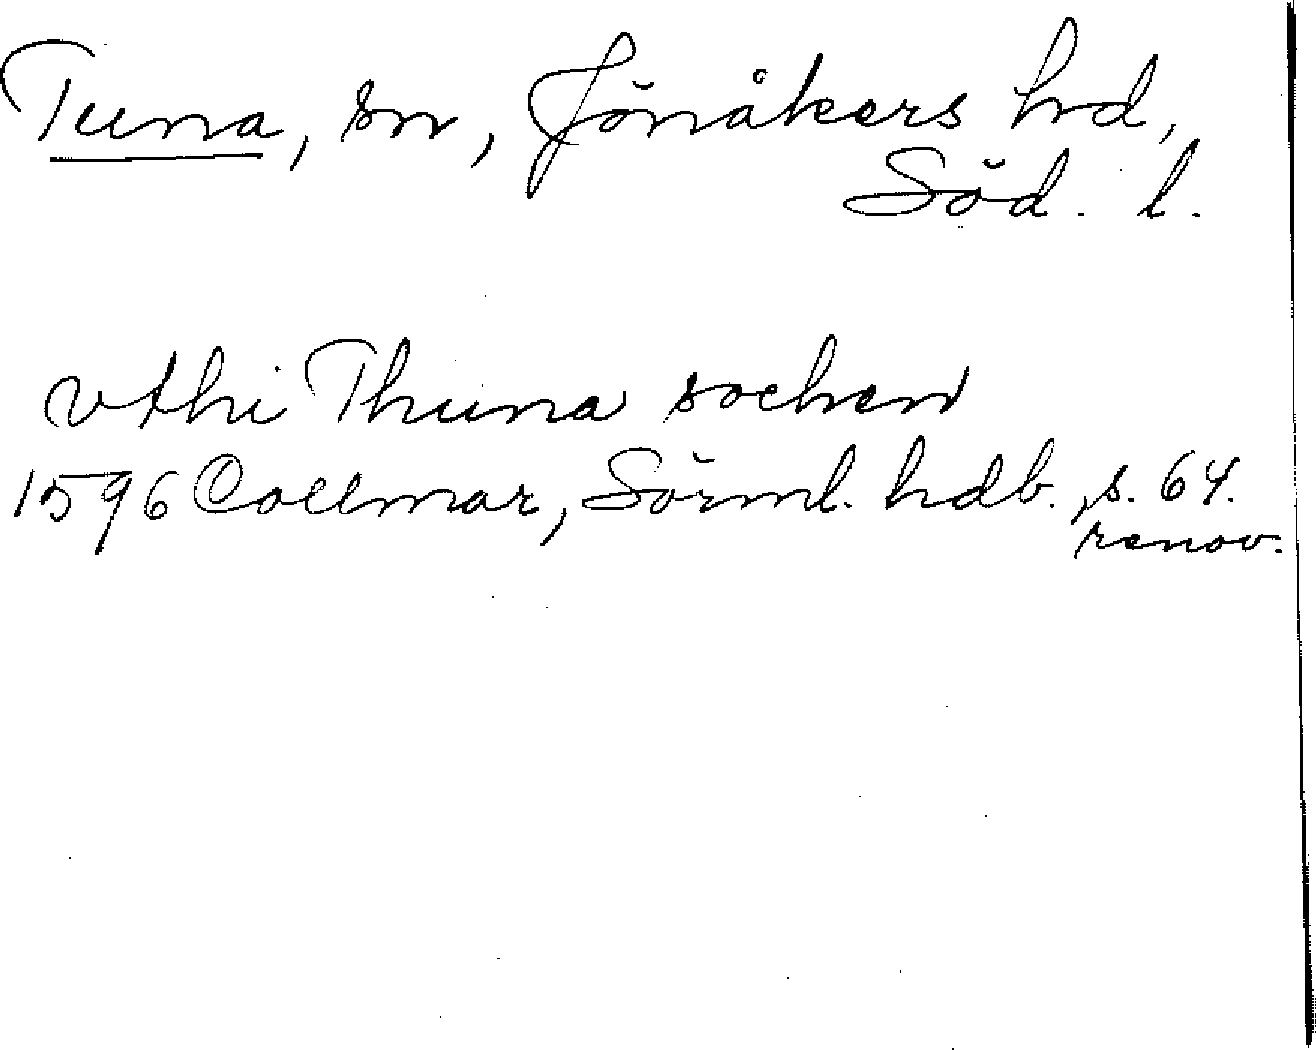 Tuna, sn, Jönåkers hd,
Söd. l.
vthi Thuna sochen
1596 Collmar, Sörml. hdb., s. 64.
renov.